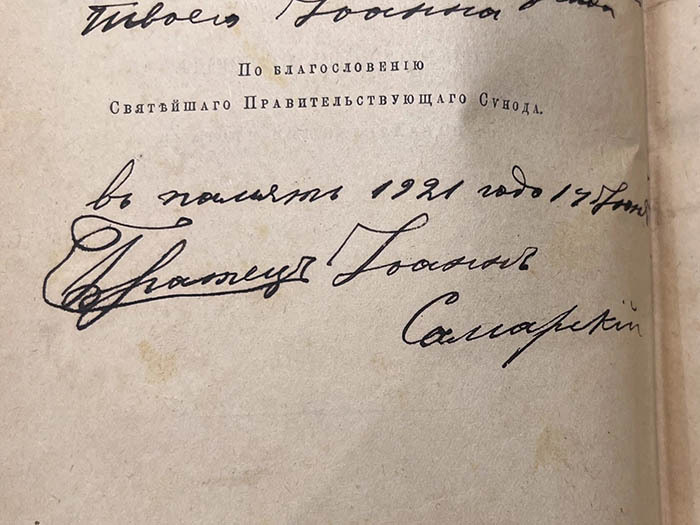 твоего Іоанна
По благословенію
Святѣйшаго Правительствующаго Сѵнода.
въ память 1921 годо 17 Іюня
Братецъ Іоаннъ
Самарскій